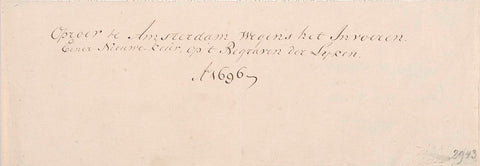 Oproer te Amsterdam Wegens het Invoeren
Eener Nieuwe Keur, op 't Begraven der Lyken.
A° 1696
2943